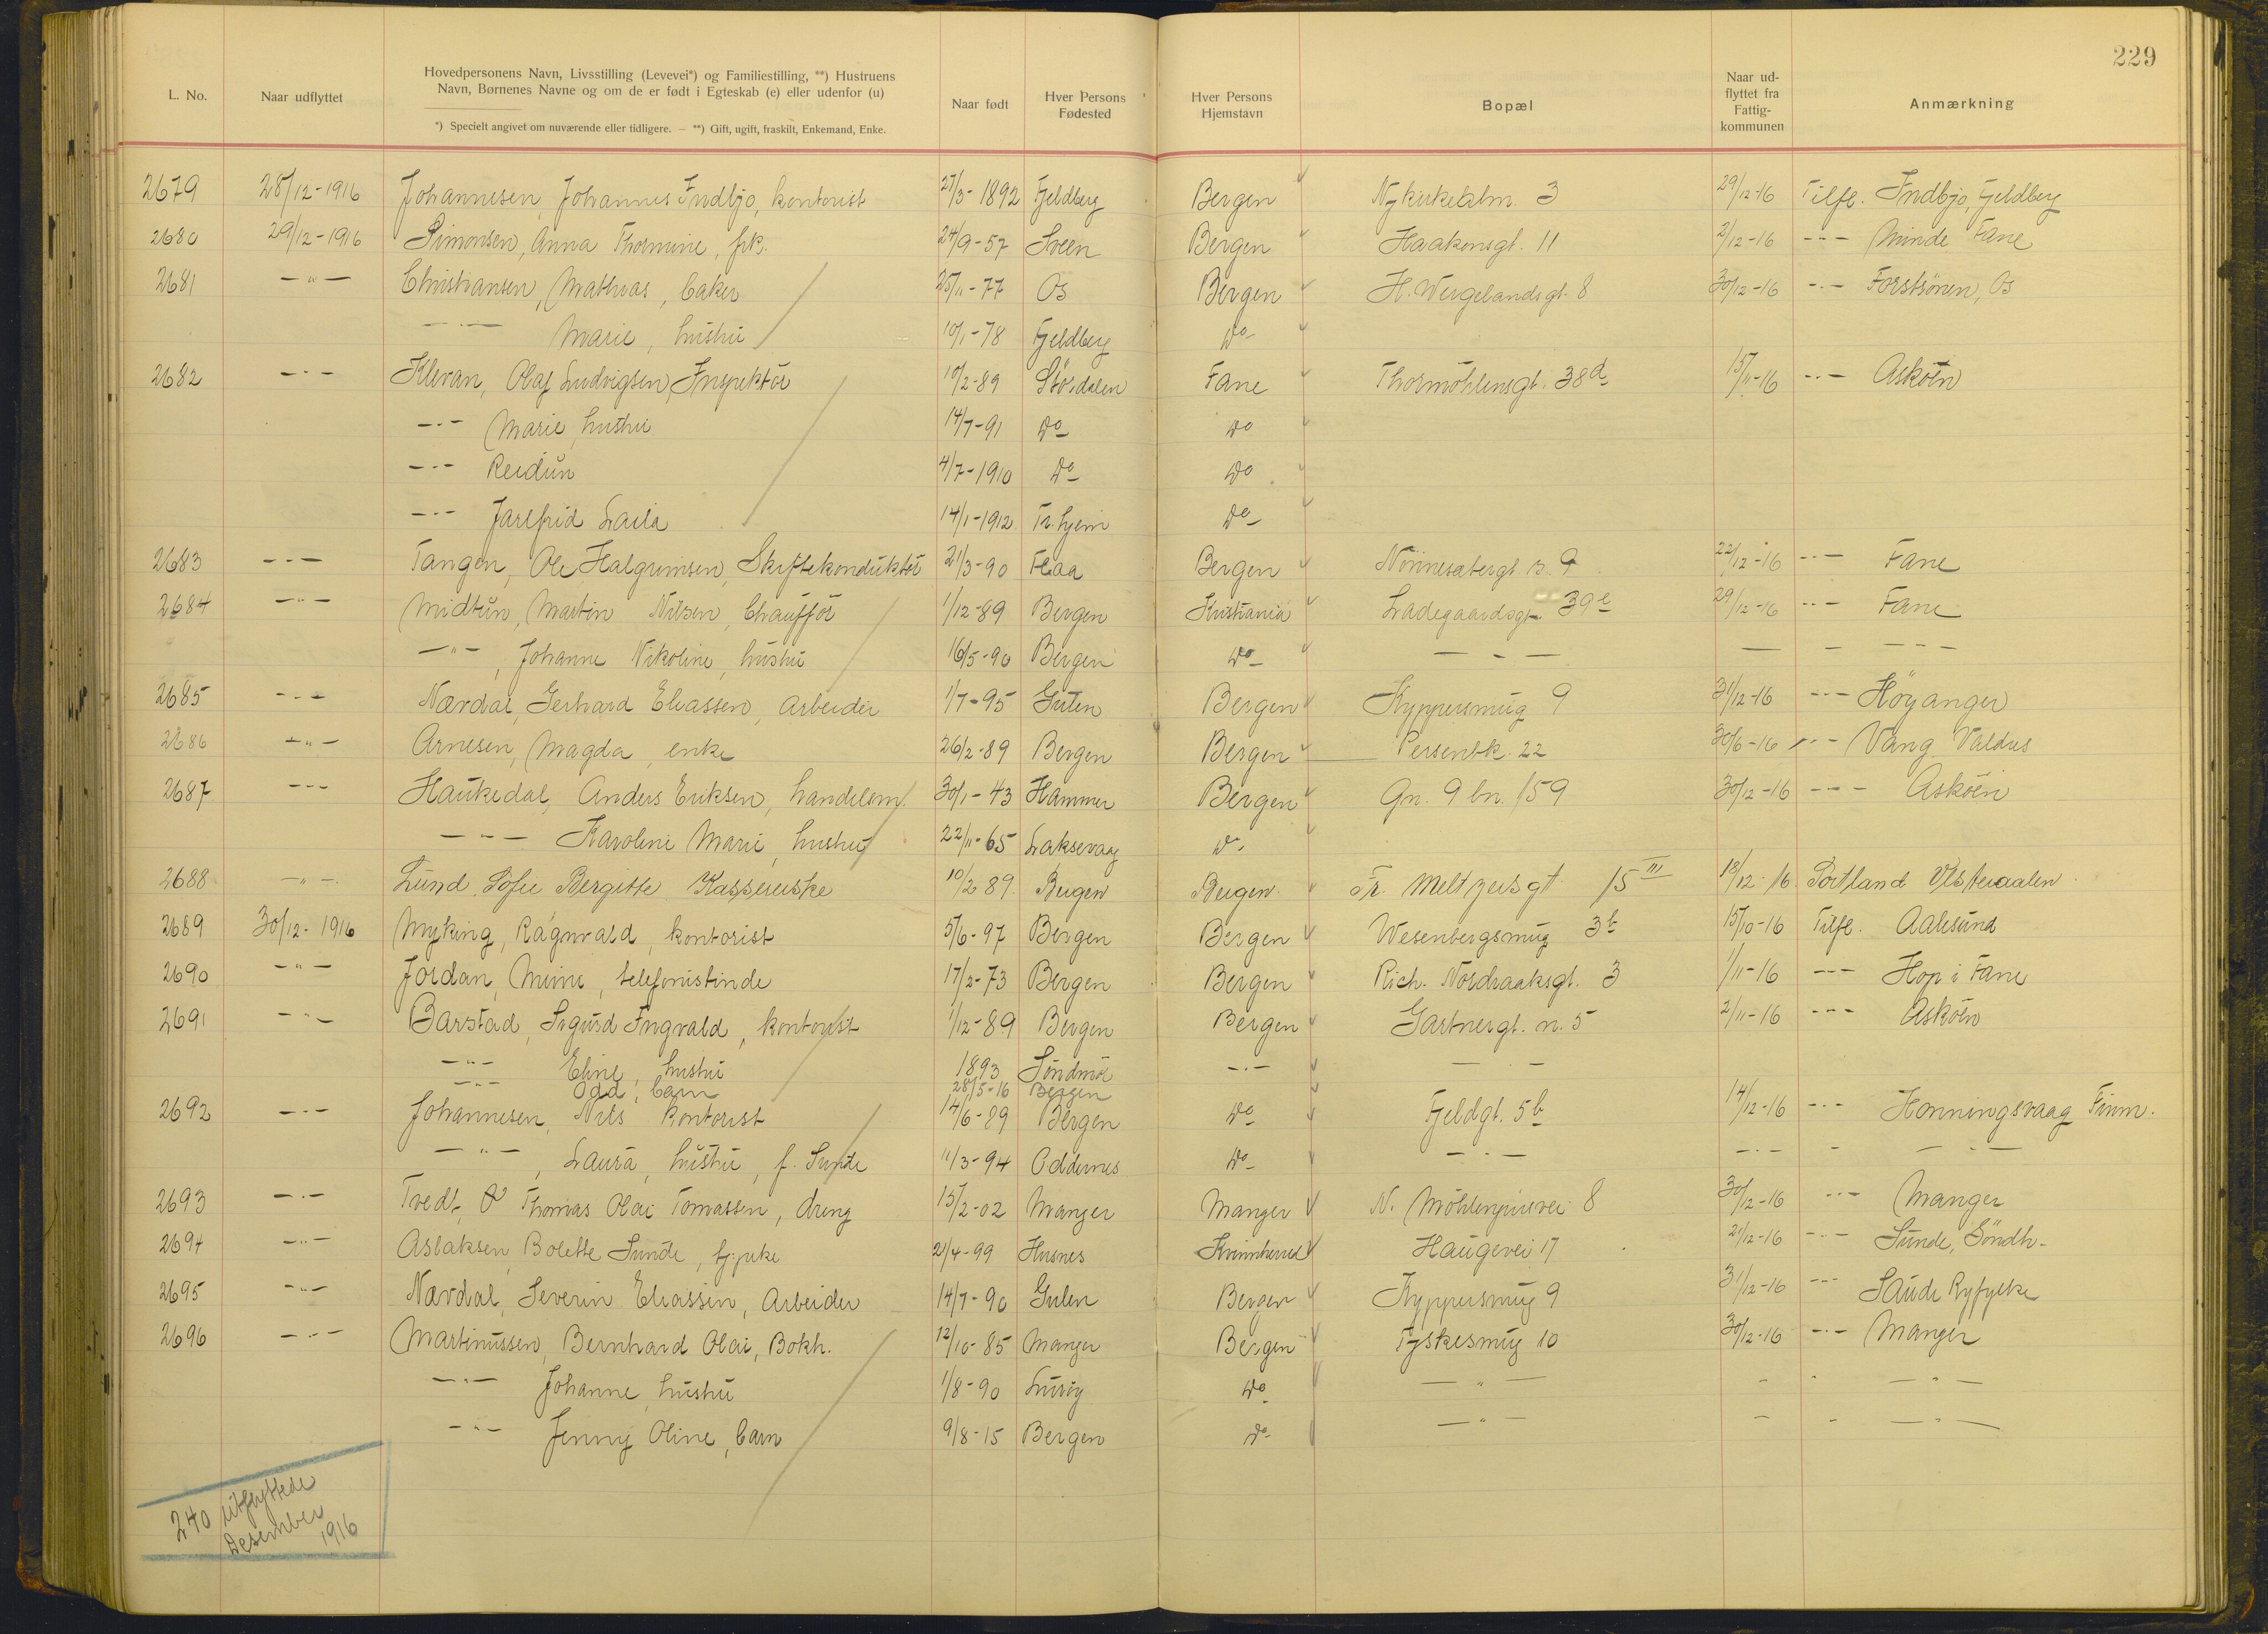 229
L. No. Naar udflyttet Hovedpersonens Navn, Livsstilling (Levevei*) og Familiestilling, **) Hustruens Navn, Børnenes Navne og om de er født i Egteskab (e) eller udenfor (u) Naar født Hver Persons Fødested Hver Persons Hjemstavn Bopæl Naar udflyttet fra Fattigkommunen Anmærkning
*) Specielt angivet om nuværende eller tidligere. — **) Gift, ugift, fraskilt, Enkemand, Enke.
2679 28/12-1916 Johannesen, Johannes Indbjo, kontorist 27/3-1892 Fjeldberg Bergen Nykirkealm. 3 29/12-16 Tilfl. Indbjo, Fjeldberg
2680 29/12-1916 Simonsen, Anna Thormine, frk. 24/9-57 Sveen Bergen Haakonsgt. 11 2/12-16 -"- Minde Fane
2681 -"- Christiansen, Mathias, baker 25/11-77 Os Bergen H. Wergelandsgt. 8 30/12-16 -"- Os
-"- Marie, hustru 10/1-78 Fjeldberg Do
2682 -"- Klevan, Olaf Ludvigsen, Inspektör 10/2-89 Stördalen Fane Thormöhlensgt. 38d 15/11-16 -"- Asköen
-"- Marie, hustru 14/7-91 Do Do
-"- Reidun 4/7-1910 Do Do
-"- Jarlfrid Laila 14/1-1912 Tr.hjem Do
2683 -"- Tangen, Ole Halgrimsen, Skiftekonduktör 21/3-90 Flaa Bergen 9 22/12-16 -"- Fane
2684 -"- Midtun, Martin Nilsen, Chauffør 1/12-89 Bergen Kristiania Ladegaardsgt. 39e 29/12-16 -"- Fane
-"-, Johanne Nikoline, hustru 16/5-90 Bergen Do - - - - - - - -
2685 -"- Nærdal, Gerhard Eliassen, arbeider 1/7-95 Gulen Bergen Kyppersmug 9 31/12-16 -"- Höyanger
2686 -"- Arnesen, Magda, enke 26/2-89 Bergen Bergen Persenbk. 22 30/6-16 -"- Vang Valdres
2687 -"- Haukedal, Anders Eriksen, handelsm. 30/1-43 Hammer Bergen Gn. 9 bn. 159 30/12-16 -"- Asköen
-"- Karoline Marie, hustru 22/11-65 Laksevaag Do
2688 -"- Lund, Sofie Bergitte Kassererske 10/2 89. Bergen Bergen Fr. Meltzersgt 15 III 18/12-16 Sortland Vesteraalen
2689 30/12-1916 Myking, Ragnvald, kontorist 5/6-97 Bergen Bergen Wesenbergsmug 3b 15/10-16 Tilfl. Aalesund
2690 -"- Jordan, Mimi, telefonistinde 17/2-73 Bergen Bergen Rich. Nordraaksgt. 3 1/11-16 -"- Hop i Fane
2691 -"- Barstad, Sigurd Ingvald, kontorist 1/12-89 Bergen Bergen Gartnergt. n. 5 2/11-16 -"- Asköen
-"- Eline, hustru 1893 Söndmör -"- - -
-"- Odd, barn 28/5-16 Bergen
2692 -"- Johannesen, Nils kontorist 14/6-89 Bergen Do Fjeldgt. 5b 14/12-16 -"- Honningsvaag Finm.
-"-, Laura, hustru, f. 11/3-94 Oddernes Do -"- -"- - -"-
2693 -"- Tvedt, Thomas Olai Tomassen, dreng 15/2-02 Manger Manger N. 8 30/12-16 -"- Manger
2694 -"- Aslaksen, Bolette Sunde, tj.pike 21/4-99 Husnes Kvinnherred Haugevei 17 21/12-16 -"- Sunde, Söndh-
2695 -"- Nærdal, Severin Eliassen, Arbeider 14/7-90 Gulen Bergen Kyppersmug 9 31/12-16 -"- Saude Ryfylke
2696 -"- Martinussen, Bernhard Olai, Bokh. 12/10-85 Manger Bergen Tyskesmug 10 30/12-16 -"- Manger
-"- Johanne, hustru 1/8-90 Luröy Do -"- - " -"-
-"- Jenny Oline, barn 9/8-15 Bergen Do -"- - - -"-
240 utflyttede
Desember
1916